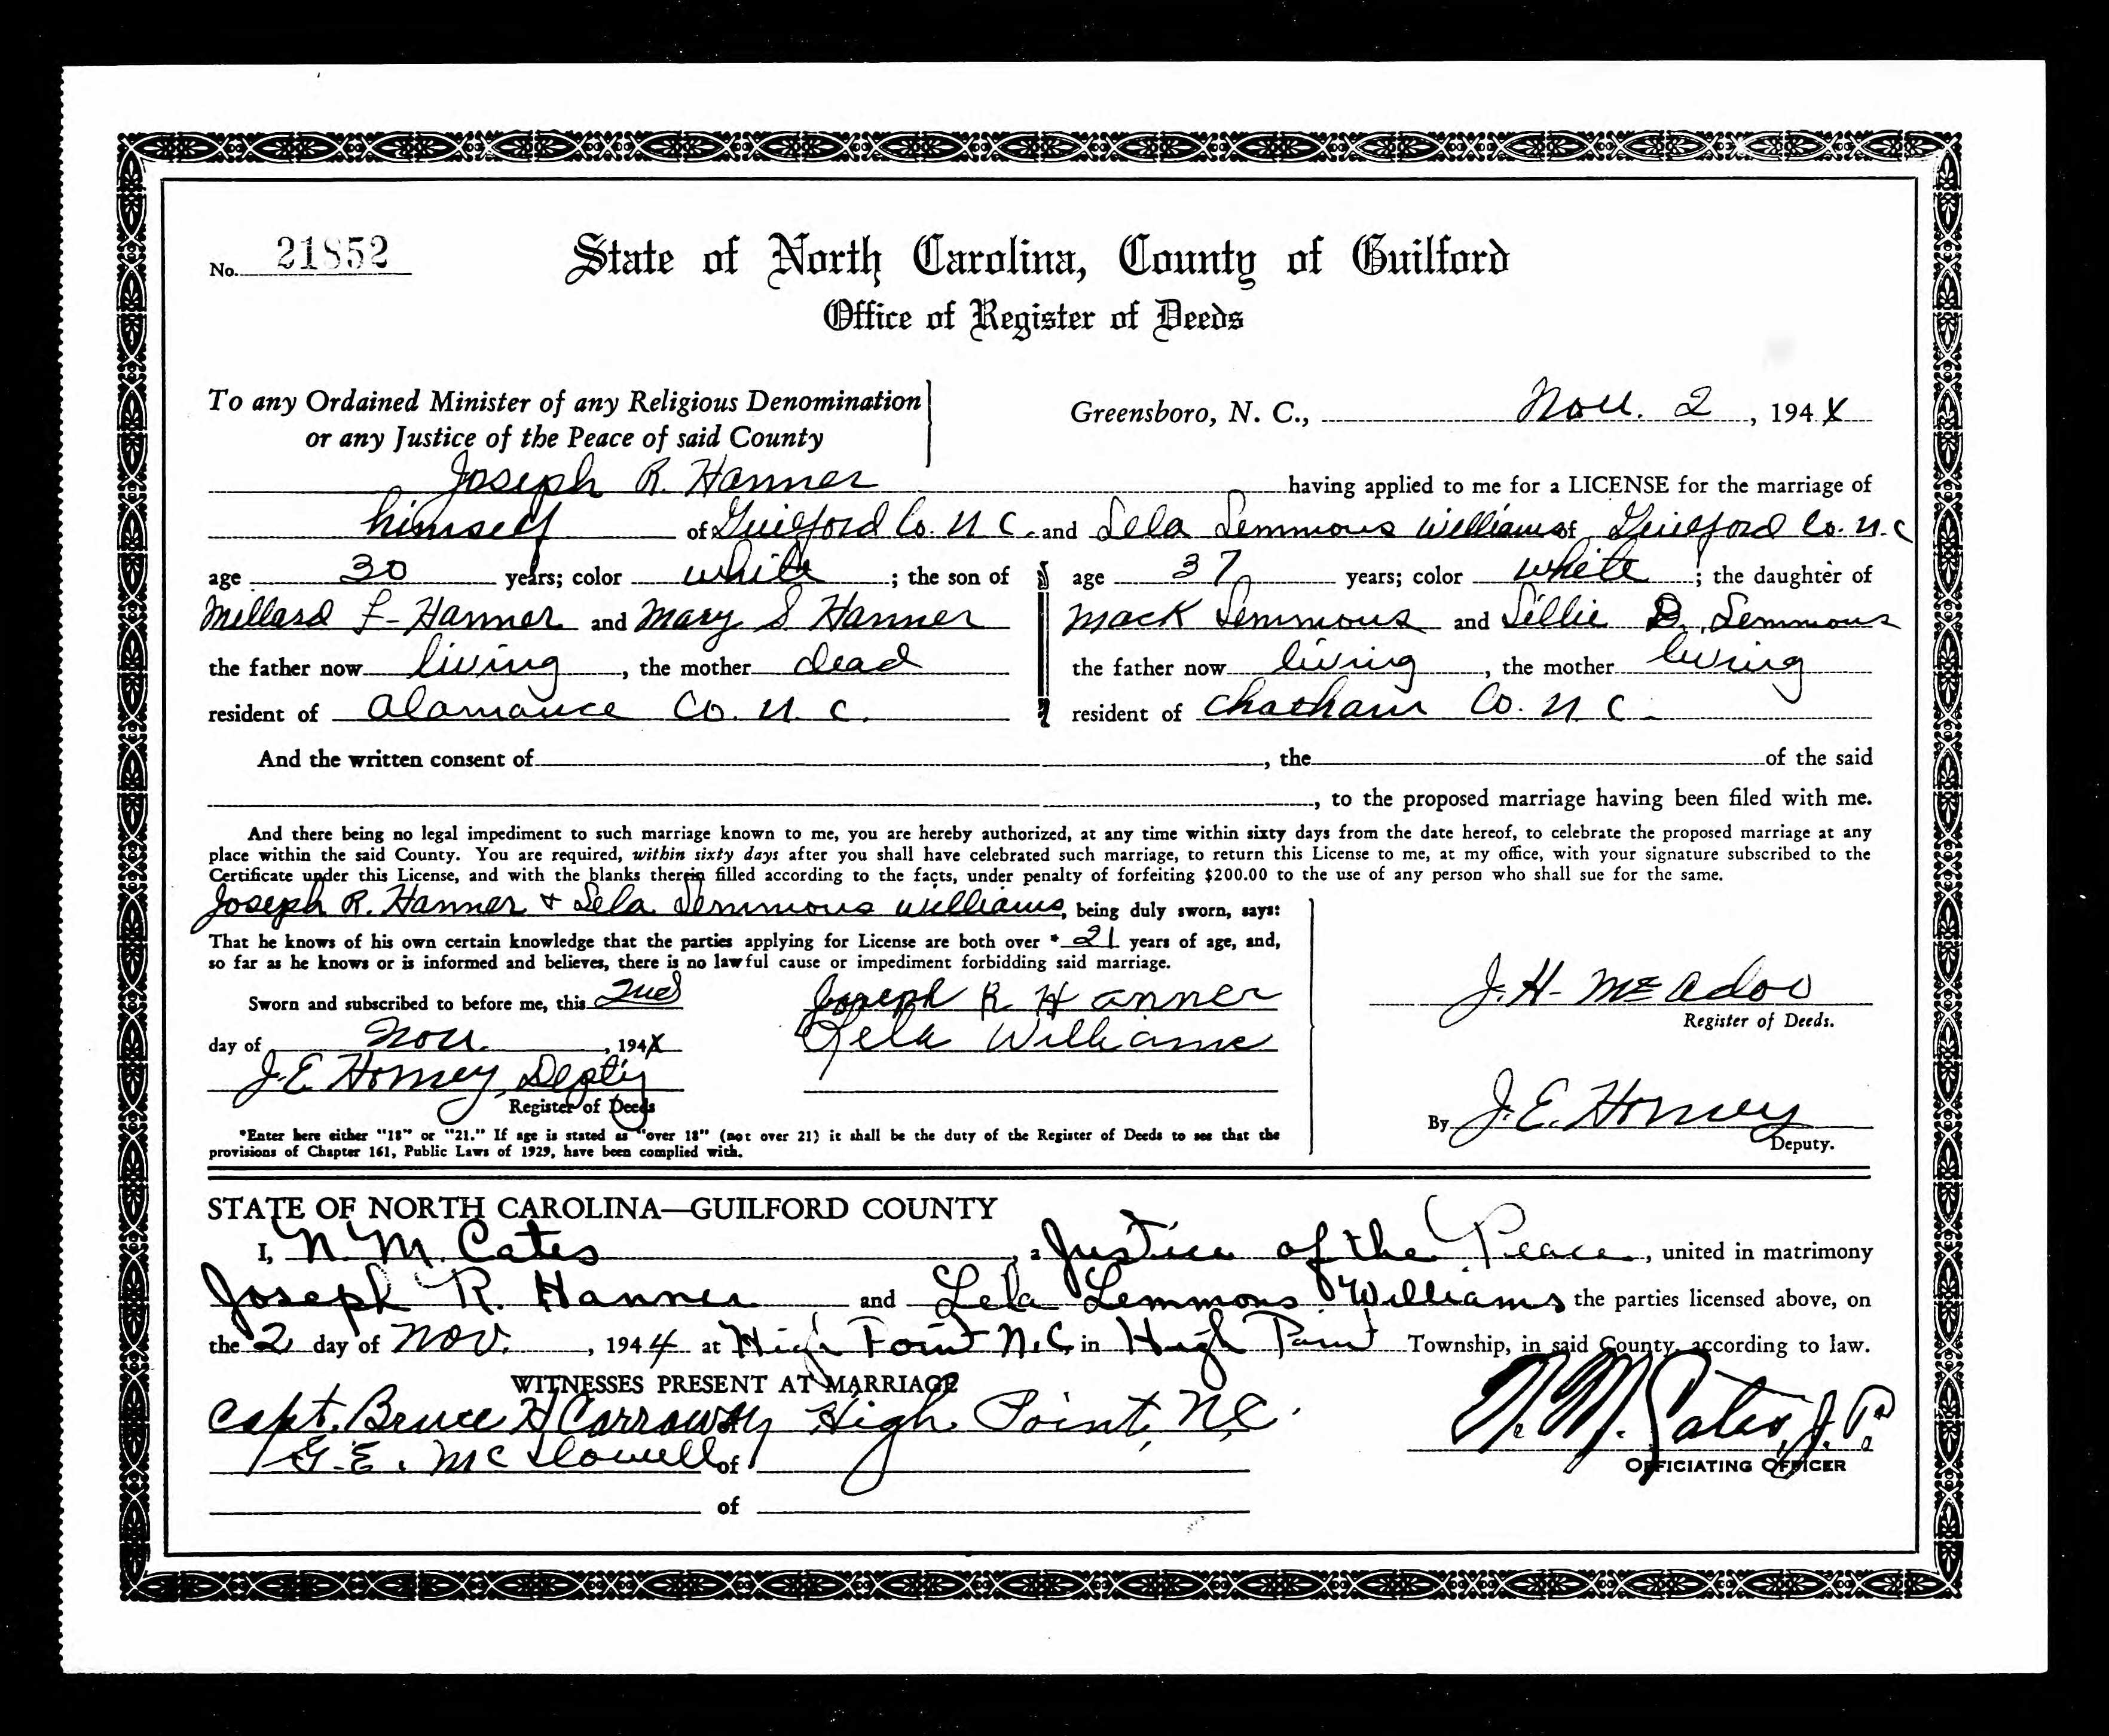 No. 21852
State of North Carolina, County of Guilford
Office of Register of Deeds
To any Ordained Minister of any Religious Denomination
or any Justice of the Peace of said County
Greensboro, N. C., Nov. 2, 1944
Joseph R. Hanner having applied to me for a LICENSE for the marriage of
himself of Guilford Co. N C. and Lela Lemmons Williams of Guilford Co. N. C
age 30 years; color white; the son of
Millard F. Hanner and Mary S Hanner
the father now living, the mother dead
resident of Alamance Co. N. C.
age 37 years; color white; the daughter of
Mack Lemmons and Lillie D. Lemmons
the father now living, the mother living
resident of Chatham Co. N C.
And the written consent of , the of the said
, to the proposed marriage having been filed with me.
And there being no legal impediment to such marriage known to me, you are hereby authorized, at any time within sixty days from the date hereof, to celebrate the proposed marriage at any
place within the said County. You are required, within sixty days after you shall have celebrated such marriage, to return this License to me, at my office, with your signature subscribed to the
Certificate under this License, and with the blanks therein filled according to the facts, under penalty of forfeiting $200.00 to the use of any person who shall sue for the same.
Joseph R. Hanner + Lela Lemmons Williams, being duly sworn, says:
That he knows of his own certain knowledge that the parties applying for License are both over * 21 years of age, and,
so far as he knows or is informed and believes, there is no lawful cause or impediment forbidding said marriage.
Sworn and subscribed to before me, this 2nd
day of Nov. , 1944
J. E. Homey, Depty
Register of Deeds
Joseph R Hanner
Lela Williams
*Enter here either "18" or "21." If age is stated as "over 18" (not over 21) it shall be the duty of the Register of Deeds to see that the
provisions of Chapter 161, Public Laws of 1929, have been complied with.
J. H. McAdoo
Register of Deeds.
By J. E. Homey
Deputy.
STATE OF NORTH CAROLINA—GUILFORD COUNTY
I, N. M. Cates, a Justice of the Peace, united in matrimony
Joseph R. Hanner and Lela Lemmons Williams the parties licensed above, on
the 2 day of Nov. , 1944 at High Point N.C. in High Point Township, in said County, according to law.
WITNESSES PRESENT AT MARRIAGE
Capt. Bruce H Carraway of High Point, N.C.
G. E. McDowell of
of
N. M. Cates, J. P.
OFFICIATING OFFICER